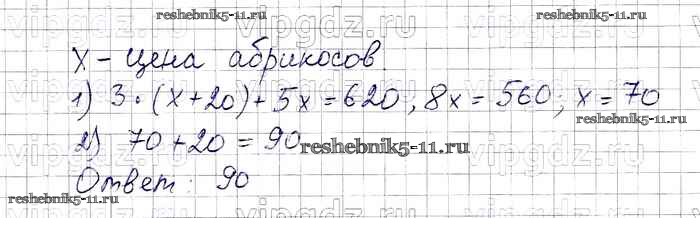 reshebnik5-11.ru
x - цена абрикосов.
1) 3·(x+20)+5x=620, 8x=560; x=70
reshebnik5-11.ru
2) 70+20=90
reshebnik5-11.ru
Ответ: 90
reshebnik5-11.ru
reshebnik5-11.ru